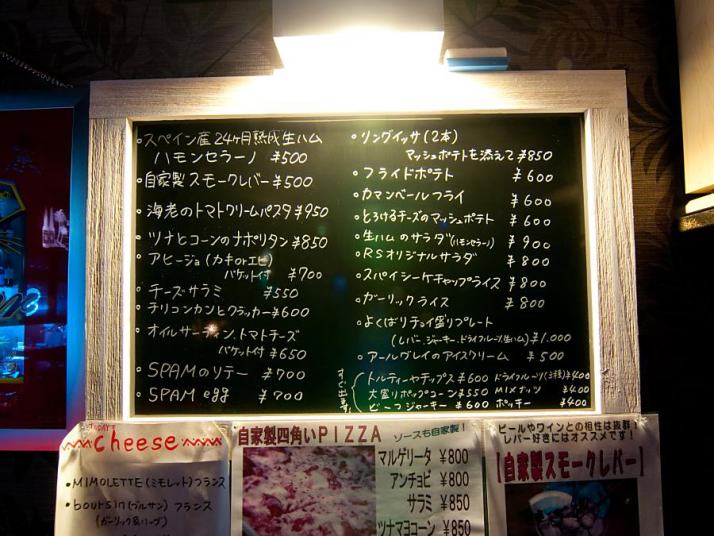 スペイン産24ヶ月熟成生ハム
ハモンセラーノ ¥500
自家製スモークレバー ¥500
海老のトマトクリームパスタ ¥950
ツナとコーンのナポリタン ¥850
アヒージョ(カキorエビ)
バケット付 ¥700
チーズ・サラミ ¥550
チリコンカンとクラッカー ¥600
オイルサーディン、トマトチーズ
バケット付 ¥650
SPAMのソテー ¥700
SPAM egg ¥700
リングイッサ(2本)
マッシュポテトを添えて ¥850
フライドポテト ¥600
カマンベールフライ ¥600
とろけるチーズのマッシュポテト ¥600
生ハムのサラダ(ハモンセラーノ) ¥900
RSオリジナルサラダ ¥800
スパイシーケチャップライス ¥800
ガーリックライス ¥800
よくばりチョイ盛りプレート
(レバー、ジャーキー、ドライフルーツ、生ハム) ¥1.000
アールグレイのアイスクリーム ¥500
すぐ出ます!
トルティーヤチップス ¥600 ドライフルーツ(3種) ¥400
大盛りポップコーン ¥550 MIXナッツ ¥400
ビーフジャーキー ¥600 ポッキー ¥400
TODAY'S
Cheese
MIMOLETTE(ミモレット)フランス
boursin(ブルサン)フランス
(ガーリック&ハーブ)
自家製四角いPIZZA ソースも自家製!
マルゲリータ ¥800
アンチョビ ¥800
サラミ ¥850
ツナマヨコーン ¥850
ビールやワインとの相性は抜群!
レバー好きにはオススメです!
【自家製スモークレバー】